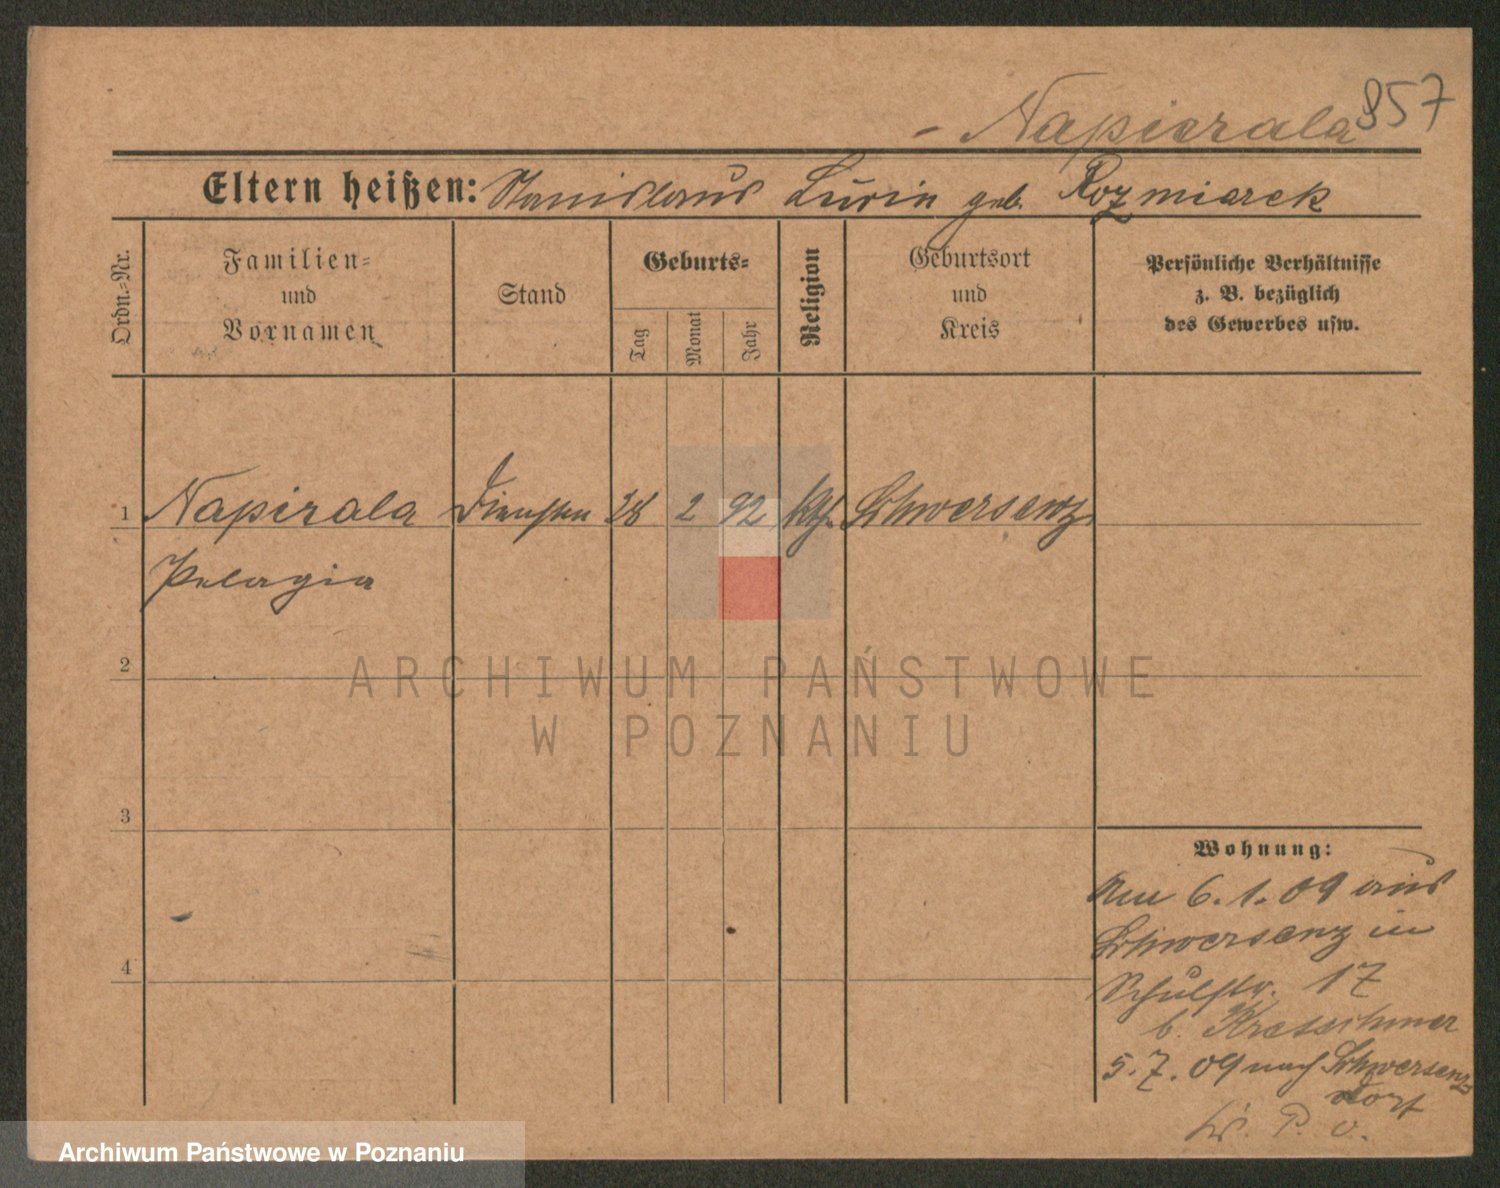 - Napierala 857
Eltern heißen: Stanislaus geb. Rozmiarek
Ordn.-Nr.
Familien-
und
Vornamen
Stand
Geburts-
Tag
Monat
Jahr
Religion
Geburtsort
und
Kreis
Persönliche Verhältnisse
z. B. bezüglich
des Gewerbes usw.
1 Napierala 28 2 92 kth. Schwersenz
Pelagia
2
3
4
Wohnung:
6.1.09 aus
Schwersenz in
Schulstr. 17
b. Kretschmer
5.7.09 nach Schwersenz
Dorf
ARCHIWUM PAŃSTWOWE
W POZNANIU
Archiwum Państwowe w Poznaniu